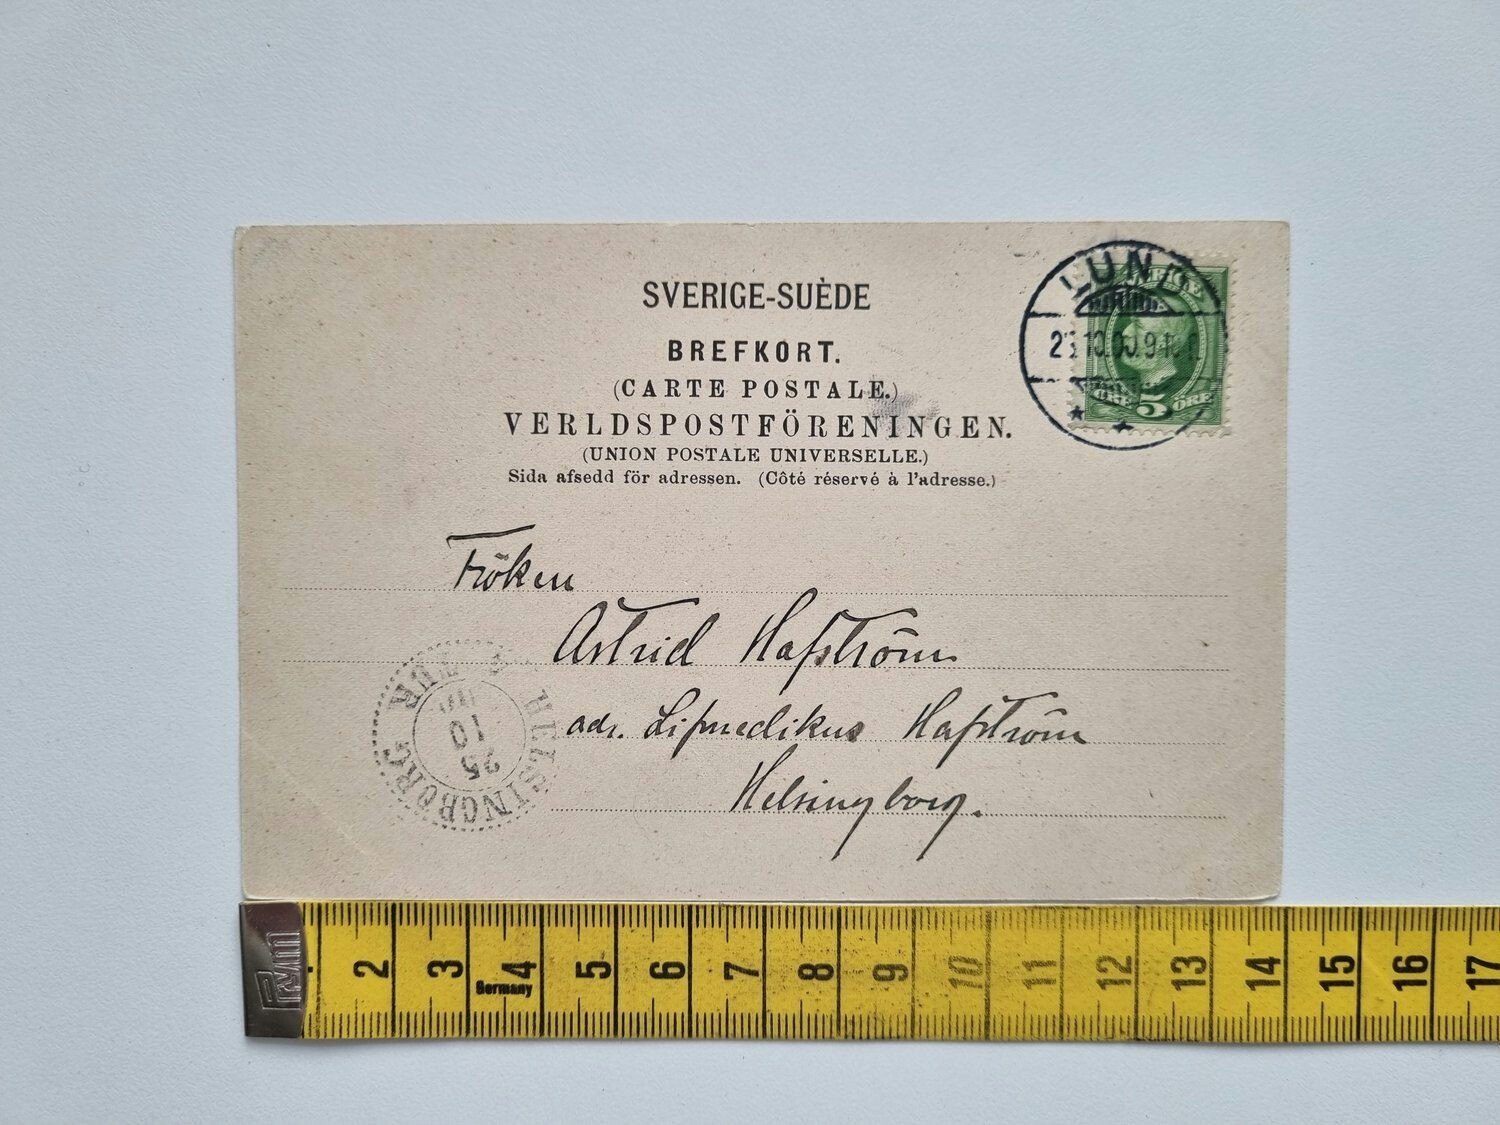 SVERIGE-SUÈDE
BREFKORT.
(CARTE POSTALE.)
VERLDSPOSTFÖRENINGEN.
(UNION POSTALE UNIVERSELLE.)
Sida afsedd för adressen. (Côté réservé à l'adresse.)
LUND
10.00
SVERIGE
ÖRE 5 ÖRE
Fröken
Astrid Hafström
adr. Lifmedikus Hafström
Helsingborg.
HELSINGBORG
25
10
2 3 4 5 6 7 8 9 10 11 12 13 14 15 16 17
Germany